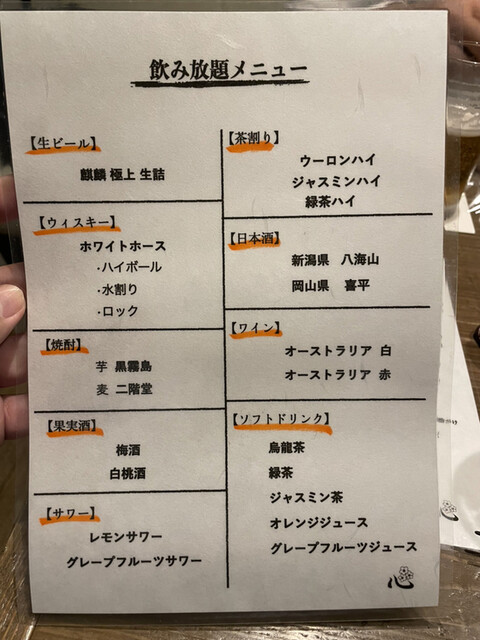 飲み放題メニュー
【生ビール】
麒麟 極上 生詰
【ウィスキー】
ホワイトホース
・ハイボール
・水割り
・ロック
【焼酎】
芋 黒霧島
麦 二階堂
【果実酒】
梅酒
白桃酒
【サワー】
レモンサワー
グレープフルーツサワー
【茶割り】
ウーロンハイ
ジャスミンハイ
緑茶ハイ
【日本酒】
新潟県 八海山
岡山県 喜平
【ワイン】
オーストラリア 白
オーストラリア 赤
【ソフトドリンク】
烏龍茶
緑茶
ジャスミン茶
オレンジジュース
グレープフルーツジュース
心